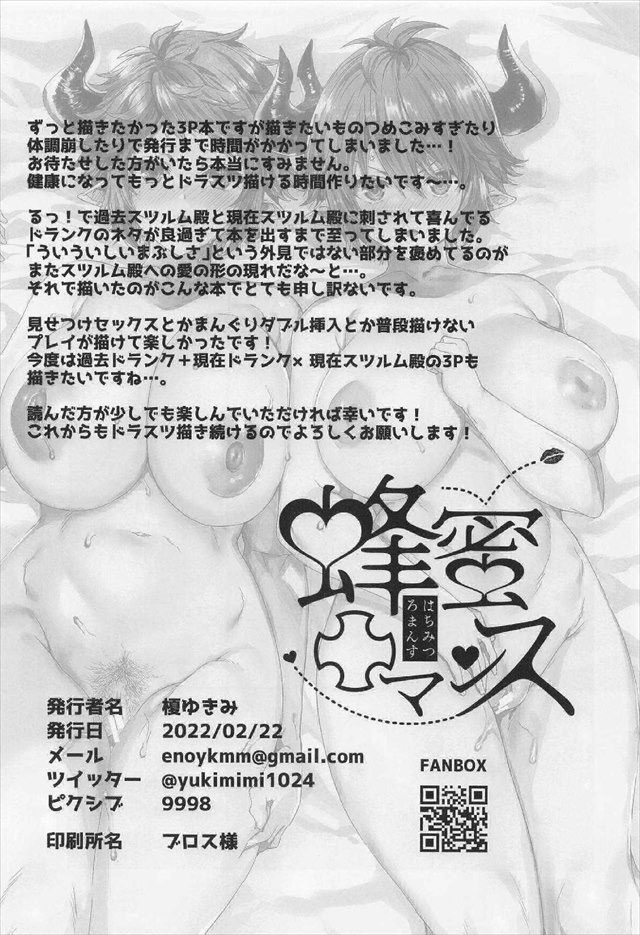 ずっと描きたかった3P本ですが描きたいものつめこみすぎたり
体調崩したりで発行まで時間がかかってしまいました…！
お待たせした方がいたら本当にすみません。
健康になってもっとドラスツ描ける時間作りたいです～…。
るっ！で過去スツルム殿と現在スツルム殿に刺されて喜んでる
ドランクのネタが良過ぎて本を出すまで至ってしまいました。
「ういういしいまぶしさ」という外見ではない部分を褒めてるのが
またスツルム殿への愛の形の現れだな～と…。
それで描いたのがこんな本でとても申し訳ないです。
見せつけセックスとかまんぐりダブル挿入とか普段描けない
プレイが描けて楽しかったです！
今度は過去ドランク＋現在ドランク×現在スツルム殿の3Pも
描きたいですね…。
読んだ方が少しでも楽しんでいただければ幸いです！
これからもドラスツ描き続けるのでよろしくお願いします！
蜂蜜
ロマンス
はちみつ
ろまんす
発行者名 榎ゆきみ
発行日 2022/02/22
メール enoykmm@gmail.com
ツイッター @yukimimi1024
ピクシブ 9998
印刷所名 ブロス様
FANBOX